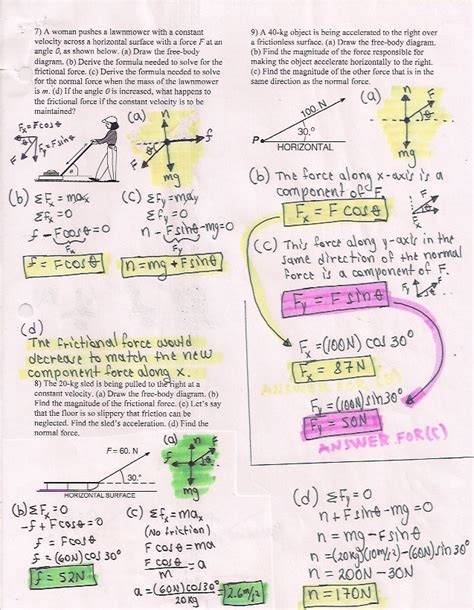 7) A woman pushes a lawnmower with a constant
velocity across a horizontal surface with a force F at an
angle θ, as shown below. (a) Draw the free-body
diagram. (b) Derive the formula needed to solve for the
frictional force. (c) Derive the formula needed to solve
for the normal force when the mass of the lawnmower
is m. (d) If the angle θ is increased, what happens to
the frictional force if the constant velocity is to be
maintained?
(a)
Fx=Fcosθ
Fy=Fsinθ
F
θ
n
f
F
mg
(b) ΣFx = max
ΣFx = 0
f - Fcosθ = 0
Fx
f = Fcosθ
(c) ΣFy = may
ΣFy = 0
n - Fsinθ - mg = 0
Fy
n = mg + Fsinθ
(d)
The frictional force would
decrease to match the new
component force along x.
8) The 20-kg sled is being pulled to the right at a
constant velocity. (a) Draw the free-body diagram. (b)
Find the magnitude of the frictional force. (c) Let's say
that the floor is so slippery that friction can be
neglected. Find the sled's acceleration. (d) Find the
normal force.
(a)
F = 60. N
30.°
HORIZONTAL SURFACE
n
F
θ
f
mg
(b) ΣFx = 0
-f + Fcosθ = 0
f = Fcosθ
f = (60N) cos 30°
f = 52N
(c) ΣFx = max
(No friction)
F cosθ = ma
F cosθ = a
m
a = (60N)cos30° = 2.6m/s2
20kg
9) A 40-kg object is being accelerated to the right over
a frictionless surface. (a) Draw the free-body diagram.
(b) Find the magnitude of the force responsible for
making the object accelerate horizontally to the right.
(c) Find the magnitude of the other force that is in the
same direction as the normal force.
(a)
100. N
30.°
P
HORIZONTAL
n
F
θ
mg
(b) The force along x-axis is a
component of F.
Fx = F cosθ
(c) This force along y-axis in the
same direction of the normal
force is a component of F.
Fy
F
Fy = F sinθ
Fx = (100N) cos 30°
Fx = 87N
ANSWER FOR (B)
Fy = (100N) sin 30°
Fy = 50N
ANSWER FOR (C)
(d) ΣFy = 0
n + Fsinθ - mg = 0
n = mg - Fsinθ
n = (20kg)(10m/s2) - (60N) sin 30°
n = 200N - 30N
n = 170N